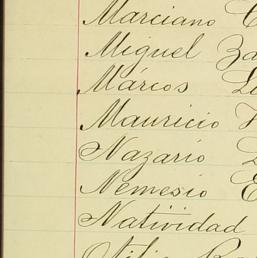 Marciano
Miguel Za
Márcos
Mauricio
Nazario
Nemesio
Natividad